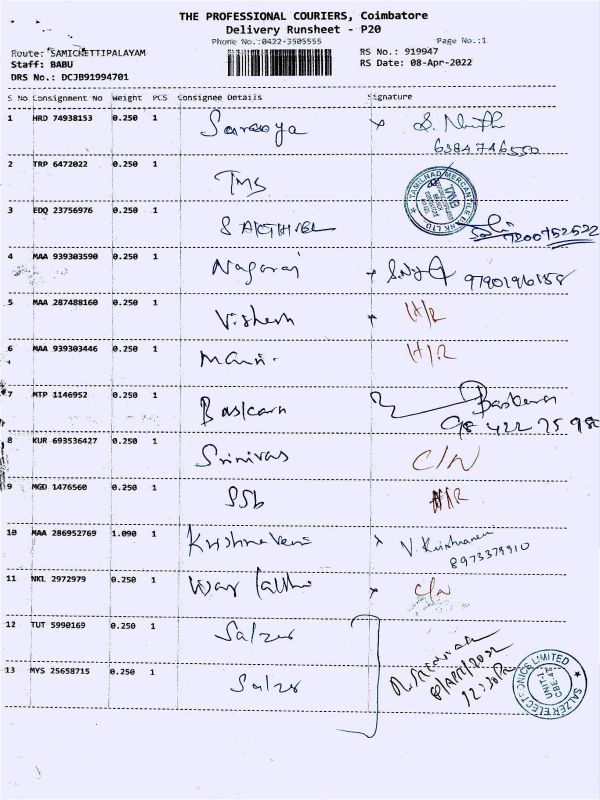 THE PROFESSIONAL COURIERS, Coimbatore
Delivery Runsheet - P20
Phone No.:0422-3505555 Page No.:1
Route: SAMICHETTIPALAYAM RS No.: 919947
Staff: BABU RS Date: 08-Apr-2022
DRS No.: DCJB91994701
S No Consignment No Weight PCS Consignee Details Signature
1 HRD 74938153 0.250 1
6384746550
2 TRP 6472022 0.250 1 TMS
TAMILNAD MERCANTILE BANK LTD
TMB
3 EDQ 23756976 0.250 1 SAKTHIVEL
7200752522
4 MAA 939303590 0.250 1 Nagaraj
9790196158
5 MAA 287488160 0.250 1 H/R
6 MAA 939303446 0.250 1 Mani. H/R
7 MTP 1146952 0.250 1 Baskaran Baskaran
98 422 75 98
8 KUR 693536427 0.250 1 Srinivas C/N
9 MGD 1476560 0.250 1 SSb
10 MAA 286952769 1.090 1 Krishnaveni V. Krishnaveni
8973379910
11 NKL 2972979 0.250 1 C/N
12 TUT 5990169 0.250 1 Salzer
13 MYS 25658715 0.250 1 Salzer
12:30
SALZER ELECTRONICS LIMITED
UNIT-1
CBE-47